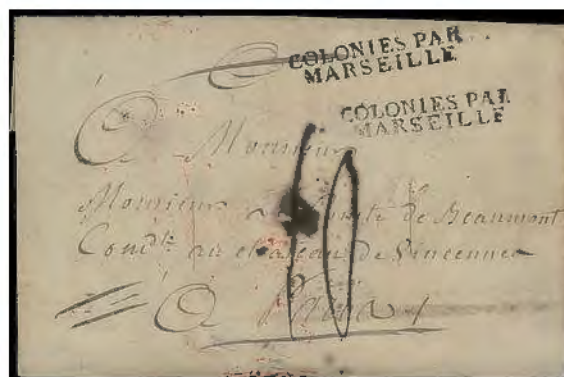 COLONIES PAR
MARSEILLE
COLONIES PAR
MARSEILLE
A Monsieur
Monsieur le Comte de Beaumont
Comdt au chateau de Vincennes
A Paris
10